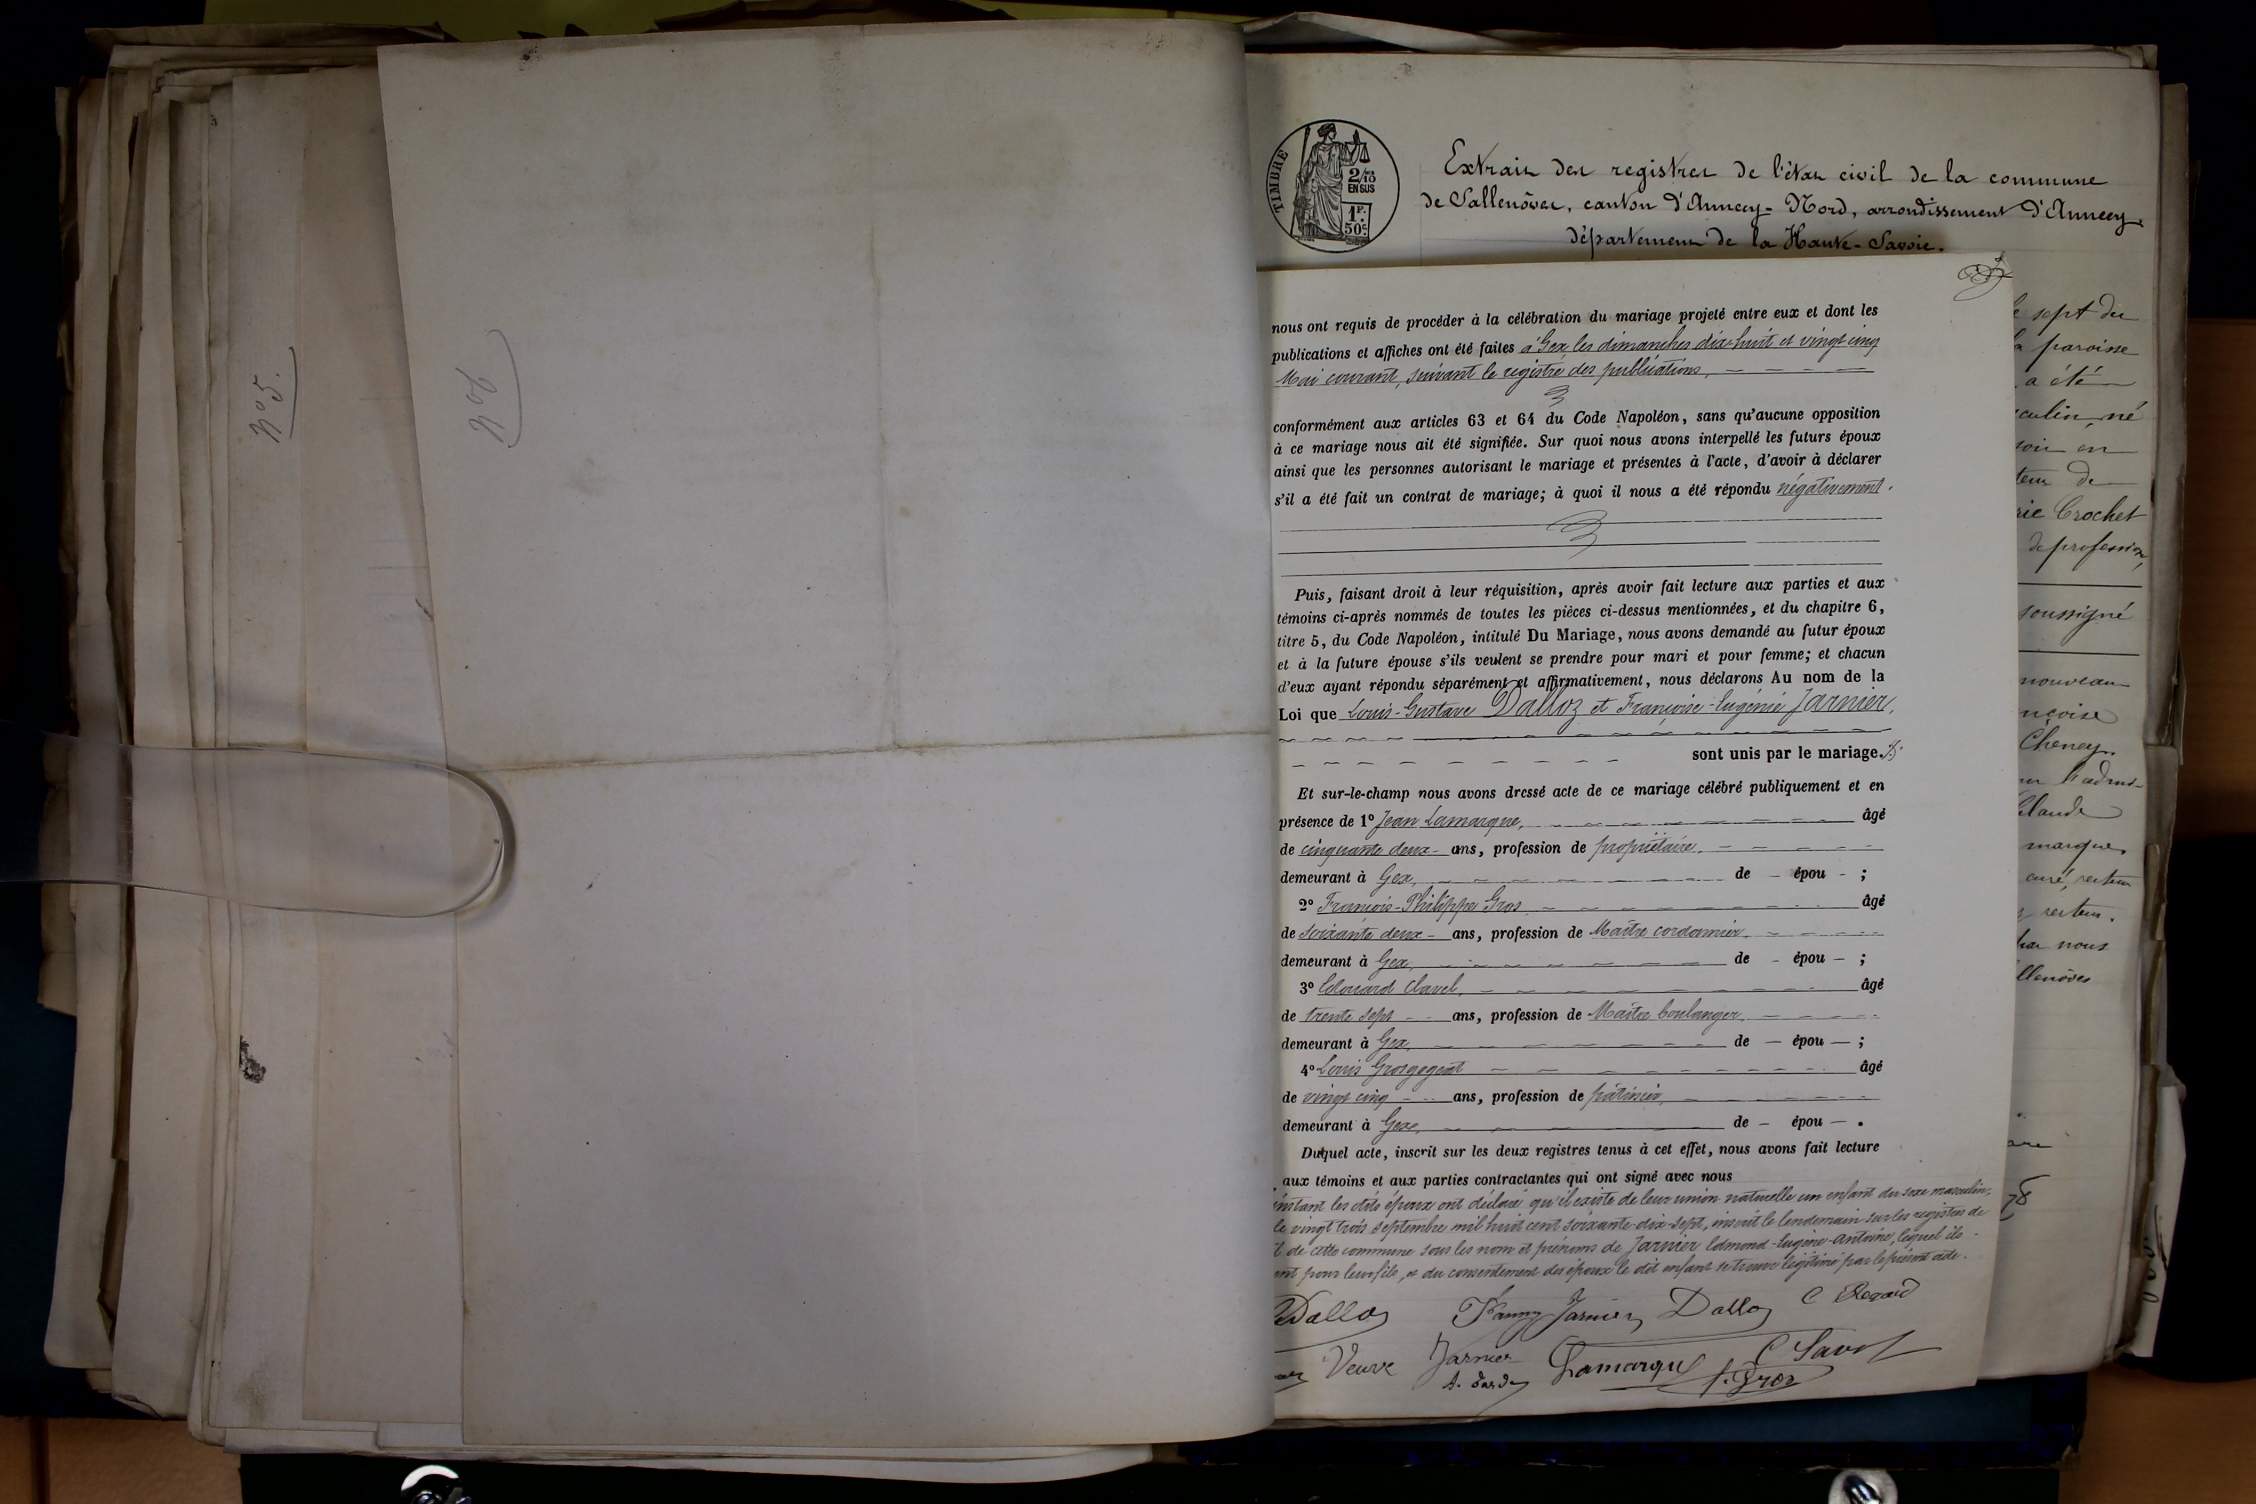 N° 5.
N° 6
TIMBRE
2/10
EN SUS
1F.
50c.
Extrait des registres de l'état civil de la commune
de Sallenôves, canton d'Annecy-Nord, arrondissement d'Annecy,
département de la Haute-Savoie.
nous ont requis de procéder à la célébration du mariage projeté entre eux et dont les
publications et affiches ont été faites à Gex, les dimanches dix-huit et vingt cinq
Mai courant, suivant le registre des publications,
conformément aux articles 63 et 64 du Code Napoléon, sans qu'aucune opposition
à ce mariage nous ait été signifiée. Sur quoi nous avons interpellé les futurs époux
ainsi que les personnes autorisant le mariage et présentes à l'acte, d'avoir à déclarer
s'il a été fait un contrat de mariage; à quoi il nous a été répondu négativement.
Puis, faisant droit à leur réquisition, après avoir fait lecture aux parties et aux
témoins ci-après nommés de toutes les pièces ci-dessus mentionnées, et du chapitre 6,
titre 5, du Code Napoléon, intitulé Du Mariage, nous avons demandé au futur époux
et à la future épouse s'ils veulent se prendre pour mari et pour femme; et chacun
d'eux ayant répondu séparément et affirmativement, nous déclarons Au nom de la
Loi que Louis-Gustave Dalloz et Françoise-Eugénie Jarnier,
sont unis par le mariage.
Et sur-le-champ nous avons dressé acte de ce mariage célébré publiquement et en
présence de 1° Jean Lamarque, âgé
de cinquante deux ans, profession de propriétaire,
demeurant à Gex, de - épou - ;
2° François-Philippe Gros âgé
de soixante deux ans, profession de Maître cordonnier,
demeurant à Gex, de - épou - ;
3° Edouard Clavel, âgé
de trente sept ans, profession de Maître boulanger,
demeurant à Gex, de - épou - ;
4° Louis Grosgogeat âgé
de vingt cinq ans, profession de pâtissier,
demeurant à Gex, de - épou - .
Duquel acte, inscrit sur les deux registres tenus à cet effet, nous avons fait lecture
aux témoins et aux parties contractantes qui ont signé avec nous
instant les dits époux ont déclaré qu'il existe de leur union naturelle un enfant du sexe masculin,
le vingt trois septembre mil huit cent soixante-dix-sept, inscrit le lendemain sur les registres de
de cette commune sous les nom et prénoms de Jarnier Edmond-Eugène-Antoine, lequel ils
pour leur fils, et du consentement des époux le dit enfant se trouve légitimé par le présent acte.
Dalloz Fanny Jarnier Dalloz C Regard
Veuve Jarnier Lamarque
f. Gros
sept du
paroisse
a été
né
en
de
Crochet
de profession,
soussigné
nouveau
Cheney.
Claude
curé, recteur
nous
78